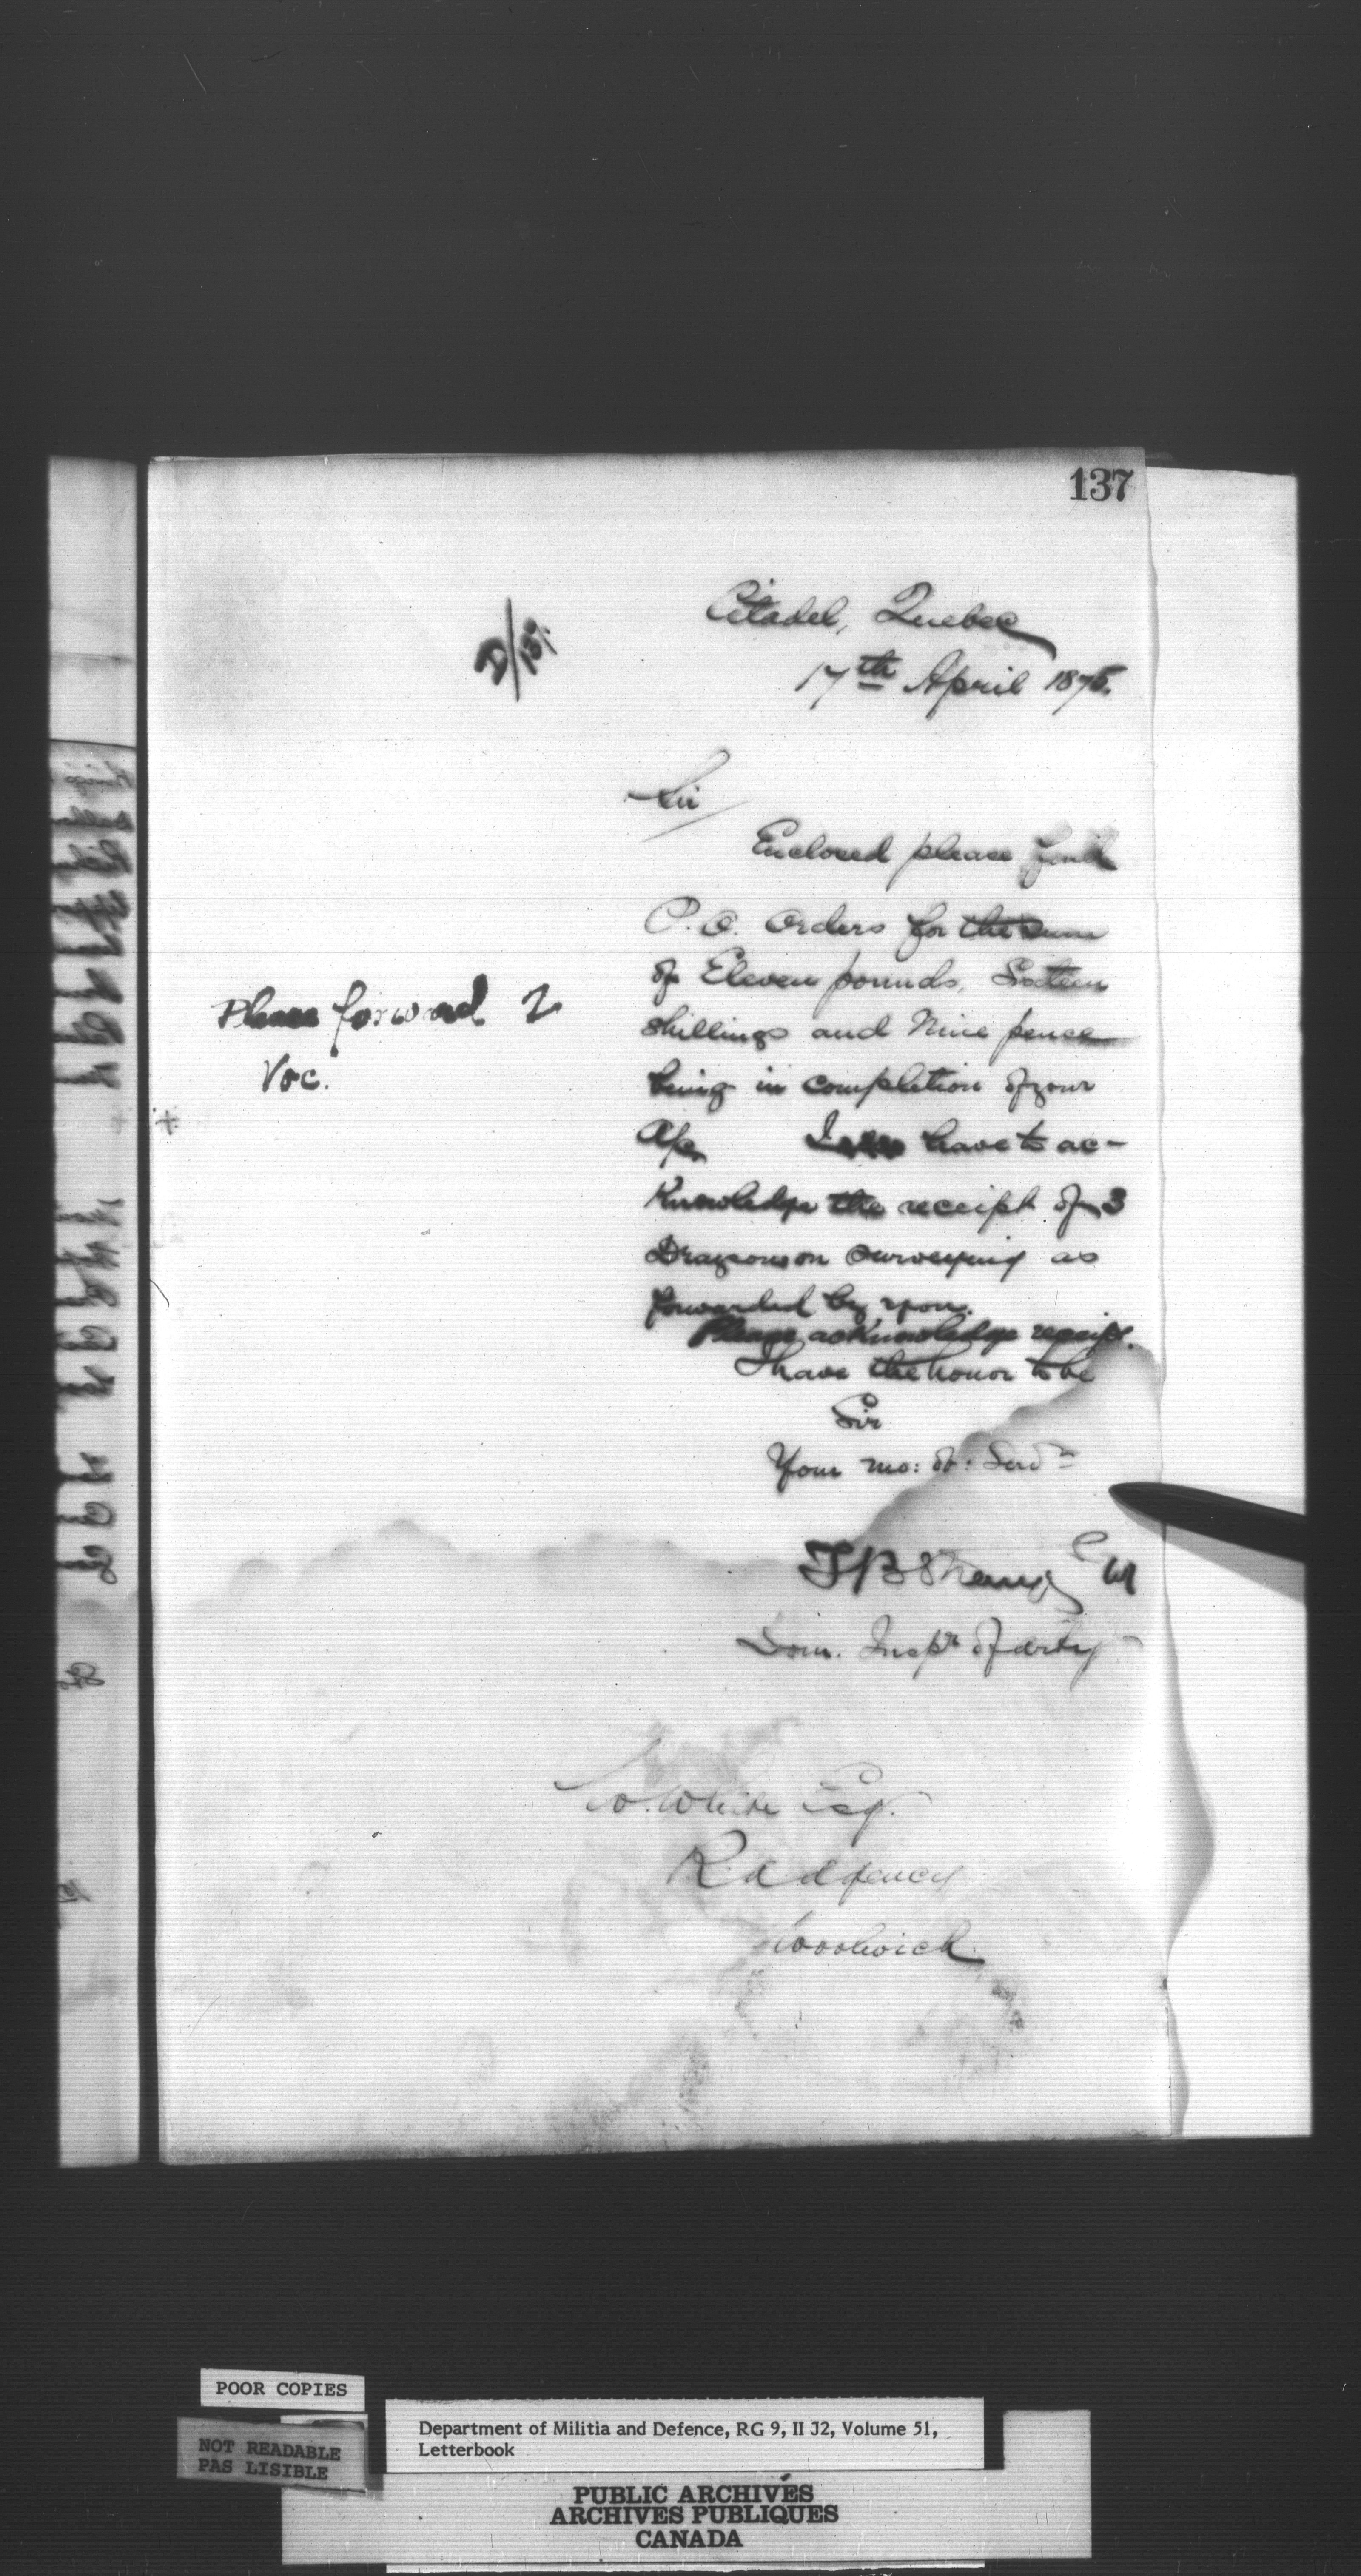 137
Citadel, Quebec
D/139.
17th April 1875.
Sir
Enclosed please find
P.O. Orders for the sum
of Eleven pounds, Sixteen
shillings and Nine pence
being in completion of your
A/c. I have to ac-
knowledge the receipt of 3
on surveying as
forwarded by you.
Please acknowledge receipt.
I have the honor to be
Sir
Your mo: ob: Servt
Please forward 2
Voc.
T B Strange
Dom. Inspr of Arty
W. White Esq.
R.A. Agency
Woolwich
POOR COPIES
NOT READABLE
PAS LISIBLE
Department of Militia and Defence, RG 9, II J2, Volume 51,
Letterbook
PUBLIC ARCHIVES
ARCHIVES PUBLIQUES
CANADA